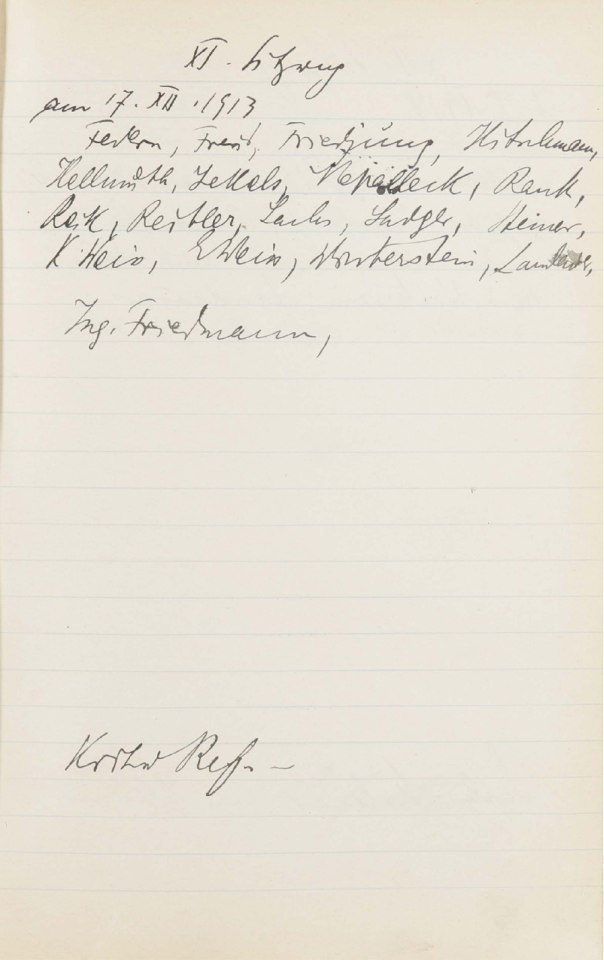 XI. Sitzung
am 17. XII. 1913
Federn, Freud, Friedjung, Hitschmann,
Hellmuth, Jekels, Nepalleck, Rank,
Reik, Reitler, Sachs, Sadger, Steiner,
K Weiss, E Weiss, Winterstein, Landauer,
Ing. Friedmann,
Ref. —